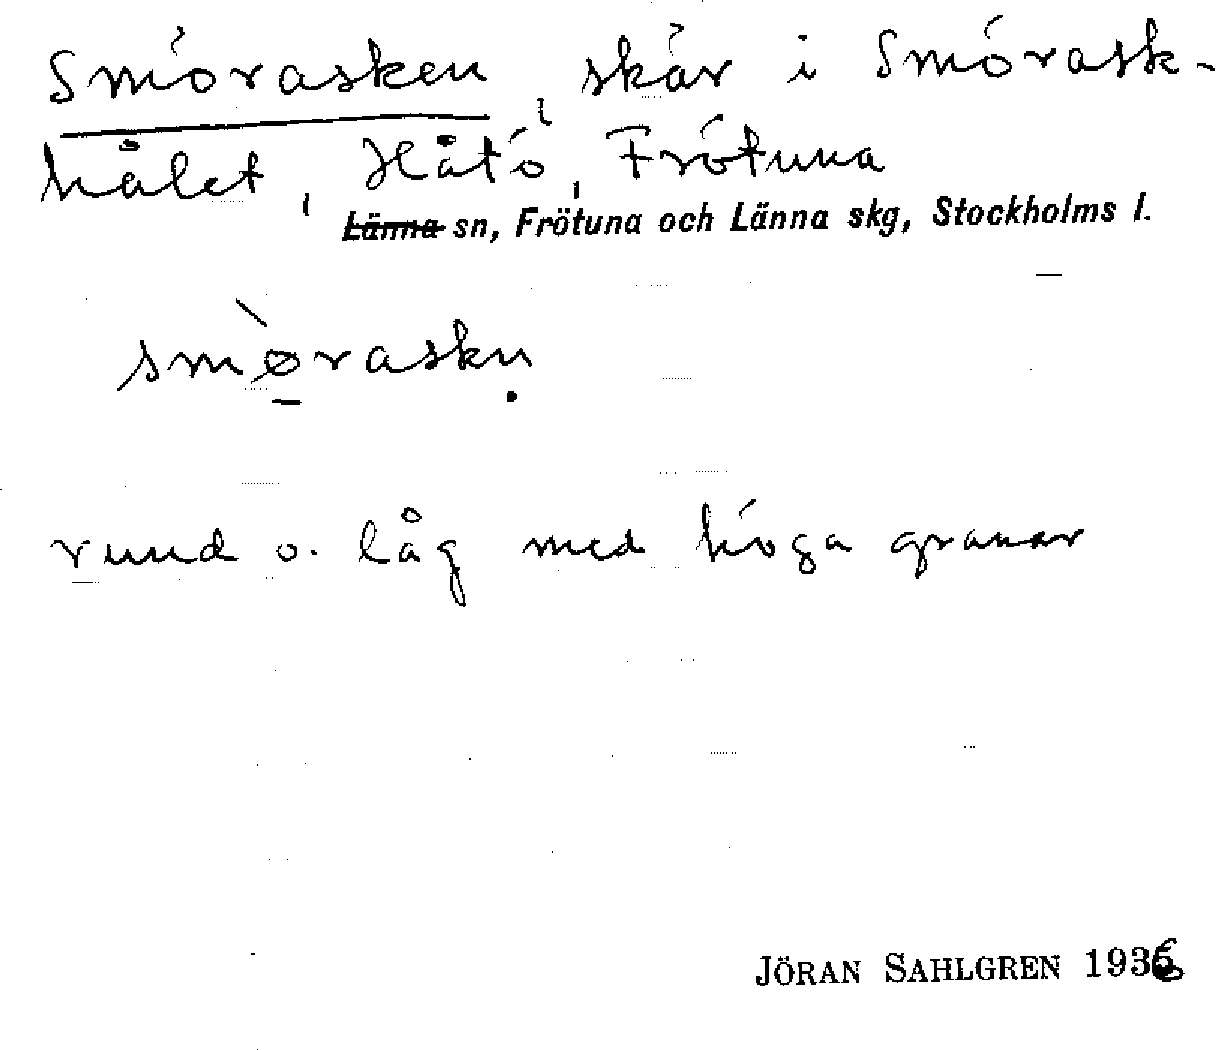 Smörasken, skär i Smörask-
hålet, Håtö, Frötuna
Länna sn, Frötuna och Länna skg, Stockholms l.
smò̠raskṇ
rund o. låg med höga granar
JÖRAN SAHLGREN 1936